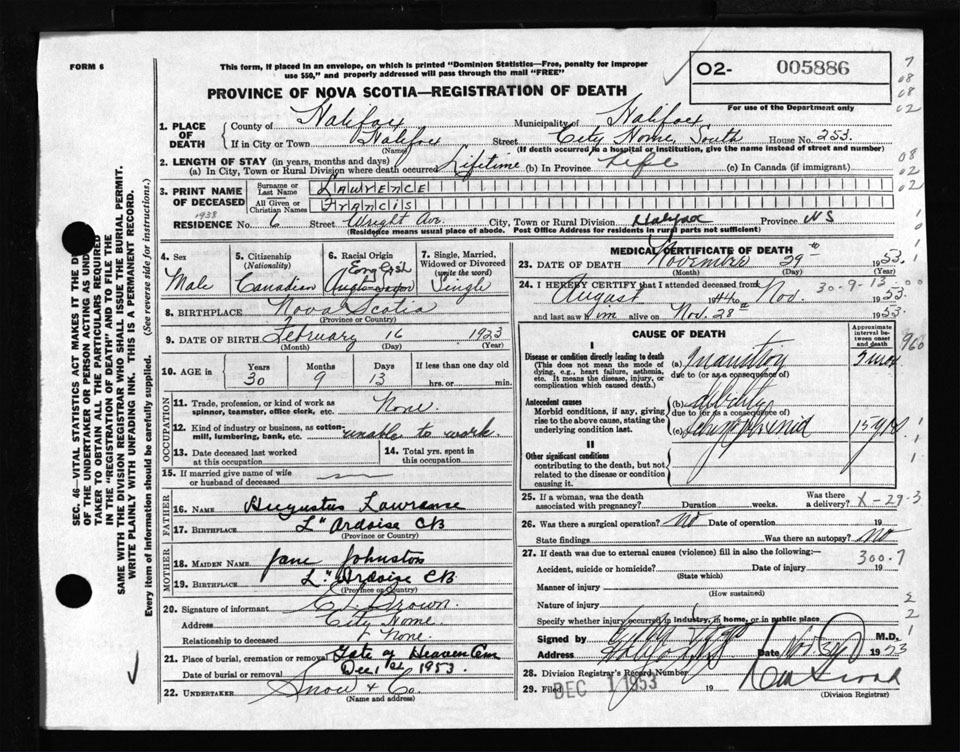 FORM 6
This form, if placed in an envelope, on which is printed "Dominion Statistics—Free, penalty for improper
use $50," and properly addressed will pass through the mail "FREE"
O2- 005886
For use of the Department only
PROVINCE OF NOVA SCOTIA—REGISTRATION OF DEATH
7
08
08
02
1. PLACE OF DEATH
County of Halifax Municipality of Halifax
If in City or Town Halifax Street City Home South House No. 253
(Name) (If death occurred in a hospital or institution, give the name instead of street and number)
2. LENGTH OF STAY (in years, months and days)
(a) In City, Town or Rural Division where death occurred Lifetime (b) In Province Life (c) In Canada (if immigrant)
08
02
02
3. PRINT NAME OF DECEASED
Surname or Last Name LAWRENCE
All Given or Christian Names FRANCIS
1938
RESIDENCE No. 6 Street Wright Ave. City, Town or Rural Division Halifax Province NS
(Residence means usual place of abode. Post Office Address for residents in rural parts not sufficient)
4. Sex
Male
5. Citizenship
(Nationality)
Canadian
6. Racial Origin
English
Anglo-Saxon
7. Single, Married,
Widowed or Divorced
(write the word)
Single
8. BIRTHPLACE Nova Scotia
(Province or Country)
9. DATE OF BIRTH February 16 1923
(Month) (Day) (Year)
10. AGE in
Years 30
Months 9
Days 13
If less than one day old
hrs. or min.
OCCUPATION
11. Trade, profession, or kind of work as
spinner, teamster, office clerk, etc. None.
12. Kind of industry or business, as cotton-
mill, lumbering, bank, etc. unable to work.
13. Date deceased last worked
at this occupation
14. Total yrs. spent in
this occupation
15. If married give name of wife
or husband of deceased
FATHER
16. Name Augustus Lawrance
17. Birthplace L" Ardoise CB
(Province or Country)
MOTHER
18. MAIDEN NAME Jane Johnston
19. BIRTHPLACE L" Ardoise CB
(Province or Country)
20. Signature of informant Brown.
Address City Home.
Relationship to deceased None.
21. Place of burial, cremation or removal Gate of Heaven Cem
Date of burial or removal Dec 1st 1953
22. UNDERTAKER Snow & Co.
(Name and address)
MEDICAL CERTIFICATE OF DEATH
23. DATE OF DEATH Novembre 29th 1953.
(Month) (Day) (Year)
24. I HEREBY CERTIFY that I attended deceased from 30-9-13
August 1944 to Nov. 1953.
and last saw him alive on Nov. 28th 1953.
CAUSE OF DEATH
Approximate
interval
between onset
and death
960
I
Disease or condition directly leading to death
(This does not mean the mode of
dying, e.g., heart failure, asthenia,
etc. It means the disease, injury, or
complication which caused death.)
(a) Inanition
due to (or as a consequence of)
Antecedent causes
Morbid conditions, if any, giving
rise to the above cause, stating the
underlying condition last.
(b)
due to (or as a consequence of)
(c) Schizophrenia 15 yrs.
II
Other significant conditions
contributing to the death, but not
related to the disease or condition
causing it.
25. If a woman, was the death
associated with pregnancy? Duration weeks. Was there
a delivery? X-29-3
26. Was there a surgical operation? No Date of operation 19
State findings Was there an autopsy? No
27. If death was due to external causes (violence) fill in also the following:— 300.7
Accident, suicide or homicide? Date of injury 19
(State which)
Manner of injury
(How sustained)
Nature of injury
Specify whether injury occurred in industry, in home, or in public place
Signed by M.D.
Address Halifax Date Nov 30 1953
28. Division Registrar's Record Number
29. Filed DEC 1 1953 19
(Division Registrar)
SEC. 46—VITAL STATISTICS ACT MAKES IT THE DU
OF THE UNDERTAKER OR PERSON ACTING AS UND
TAKER TO OBTAIN ALL THE PARTICULARS REQUIRED
IN THE "REGISTRATION OF DEATH" AND TO FILE THE
SAME WITH THE DIVISION REGISTRAR WHO SHALL ISSUE THE BURIAL PERMIT.
WRITE PLAINLY WITH UNFADING INK. THIS IS A PERMANENT RECORD.
Every item of information should be carefully supplied. (See reverse side for instructions.)